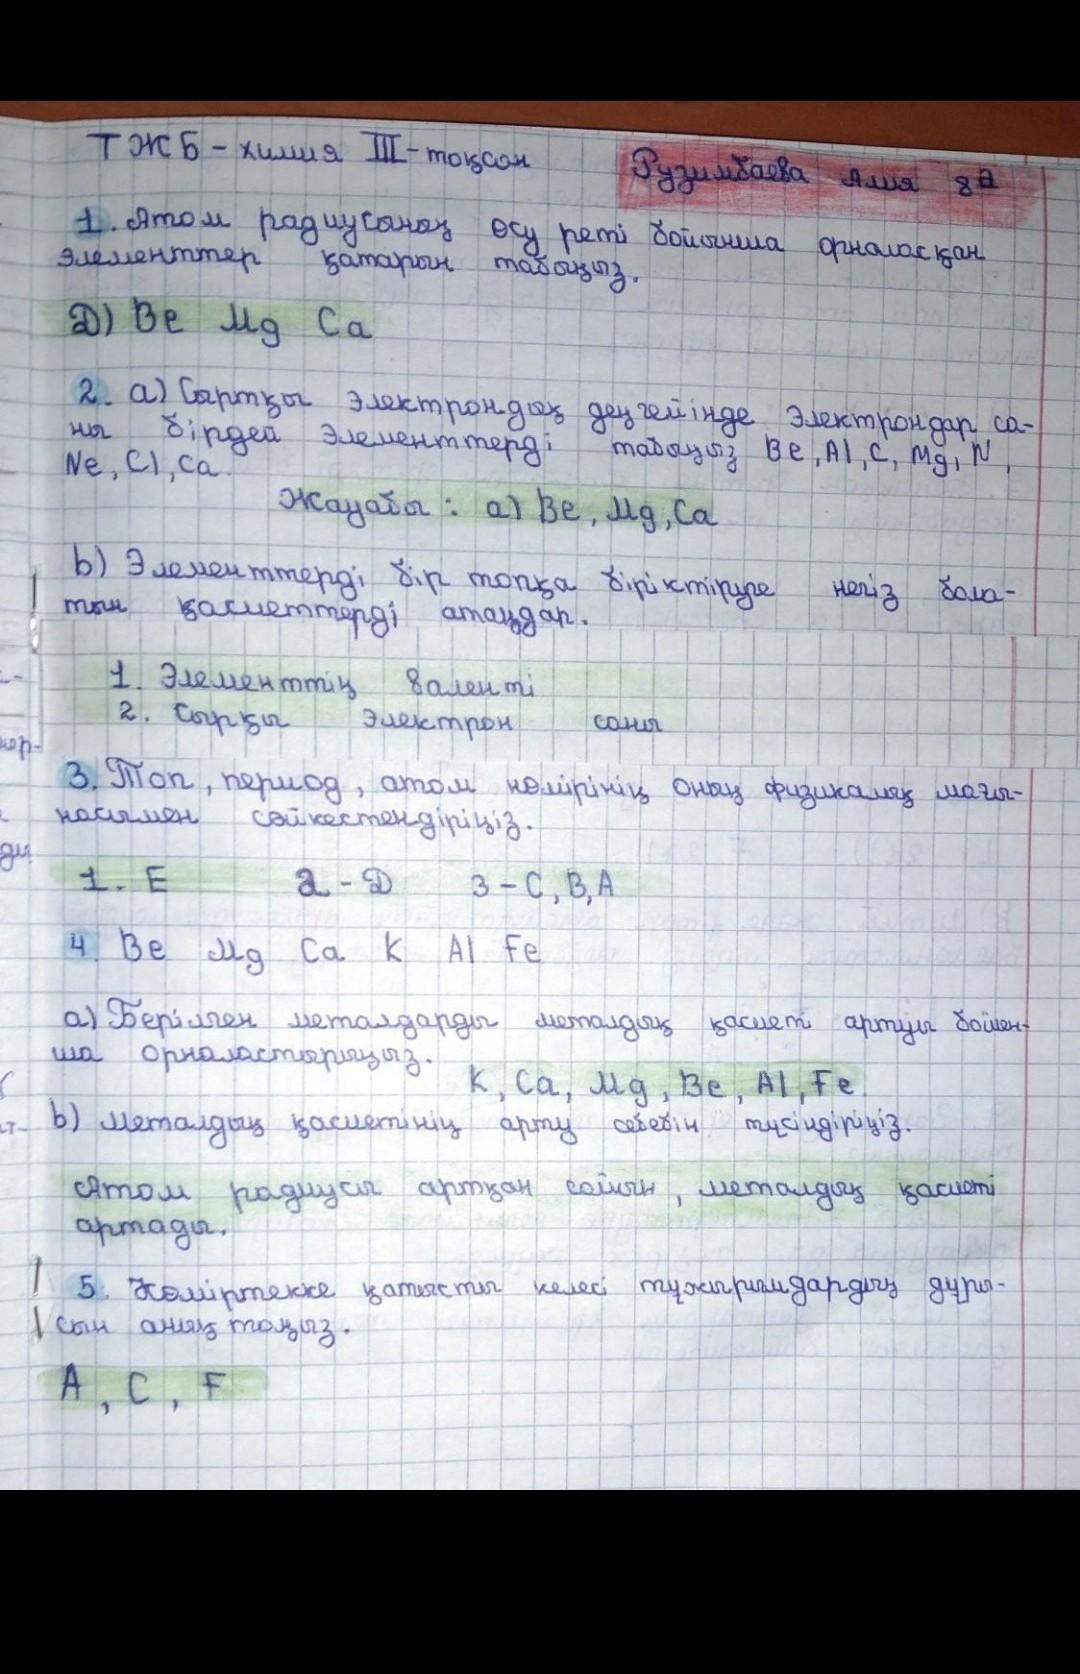 ТЖБ - химия III-тоқсан
Рузимбаева Алия 8Ә
1. Атом радиусының өсу реті бойынша орналасқан
элементтер қатарын табыңыз.
Д) Be Mg Ca
2. а) Сыртқы электрондық деңгейінде электрондар са-
ны бірдей элементтерді табыңыз Be, Al, C, Mg, N,
Ne, Cl, Ca.
Жауабы : а) Be, Mg, Ca
b) Элементтерді бір топқа біріктіруге негіз бола-
тын қасиеттерді атаңдар.
1. Элементтің валенті
2. Сырқы электрон саны
3. Топ, период, атом нөмірінің оның физикалық мағы-
насымен сәйкестендіріңіз.
1. E 2 - D 3 - C, B, A
4. Be Mg Ca K Al Fe
а) Берілген металдарды металдық қасиеті артуы бойын-
ша орналастырыңыз.
K, Ca, Mg, Be, Al, Fe.
b) Металдық қасиетінің арту себебін түсіндіріңіз.
Атом радиусы артқан сайын, металдық қасиеті
артады.
5. Көміртекке қатысты келесі тұжырымдардың дұры-
сын анықтаңыз.
A, C, F